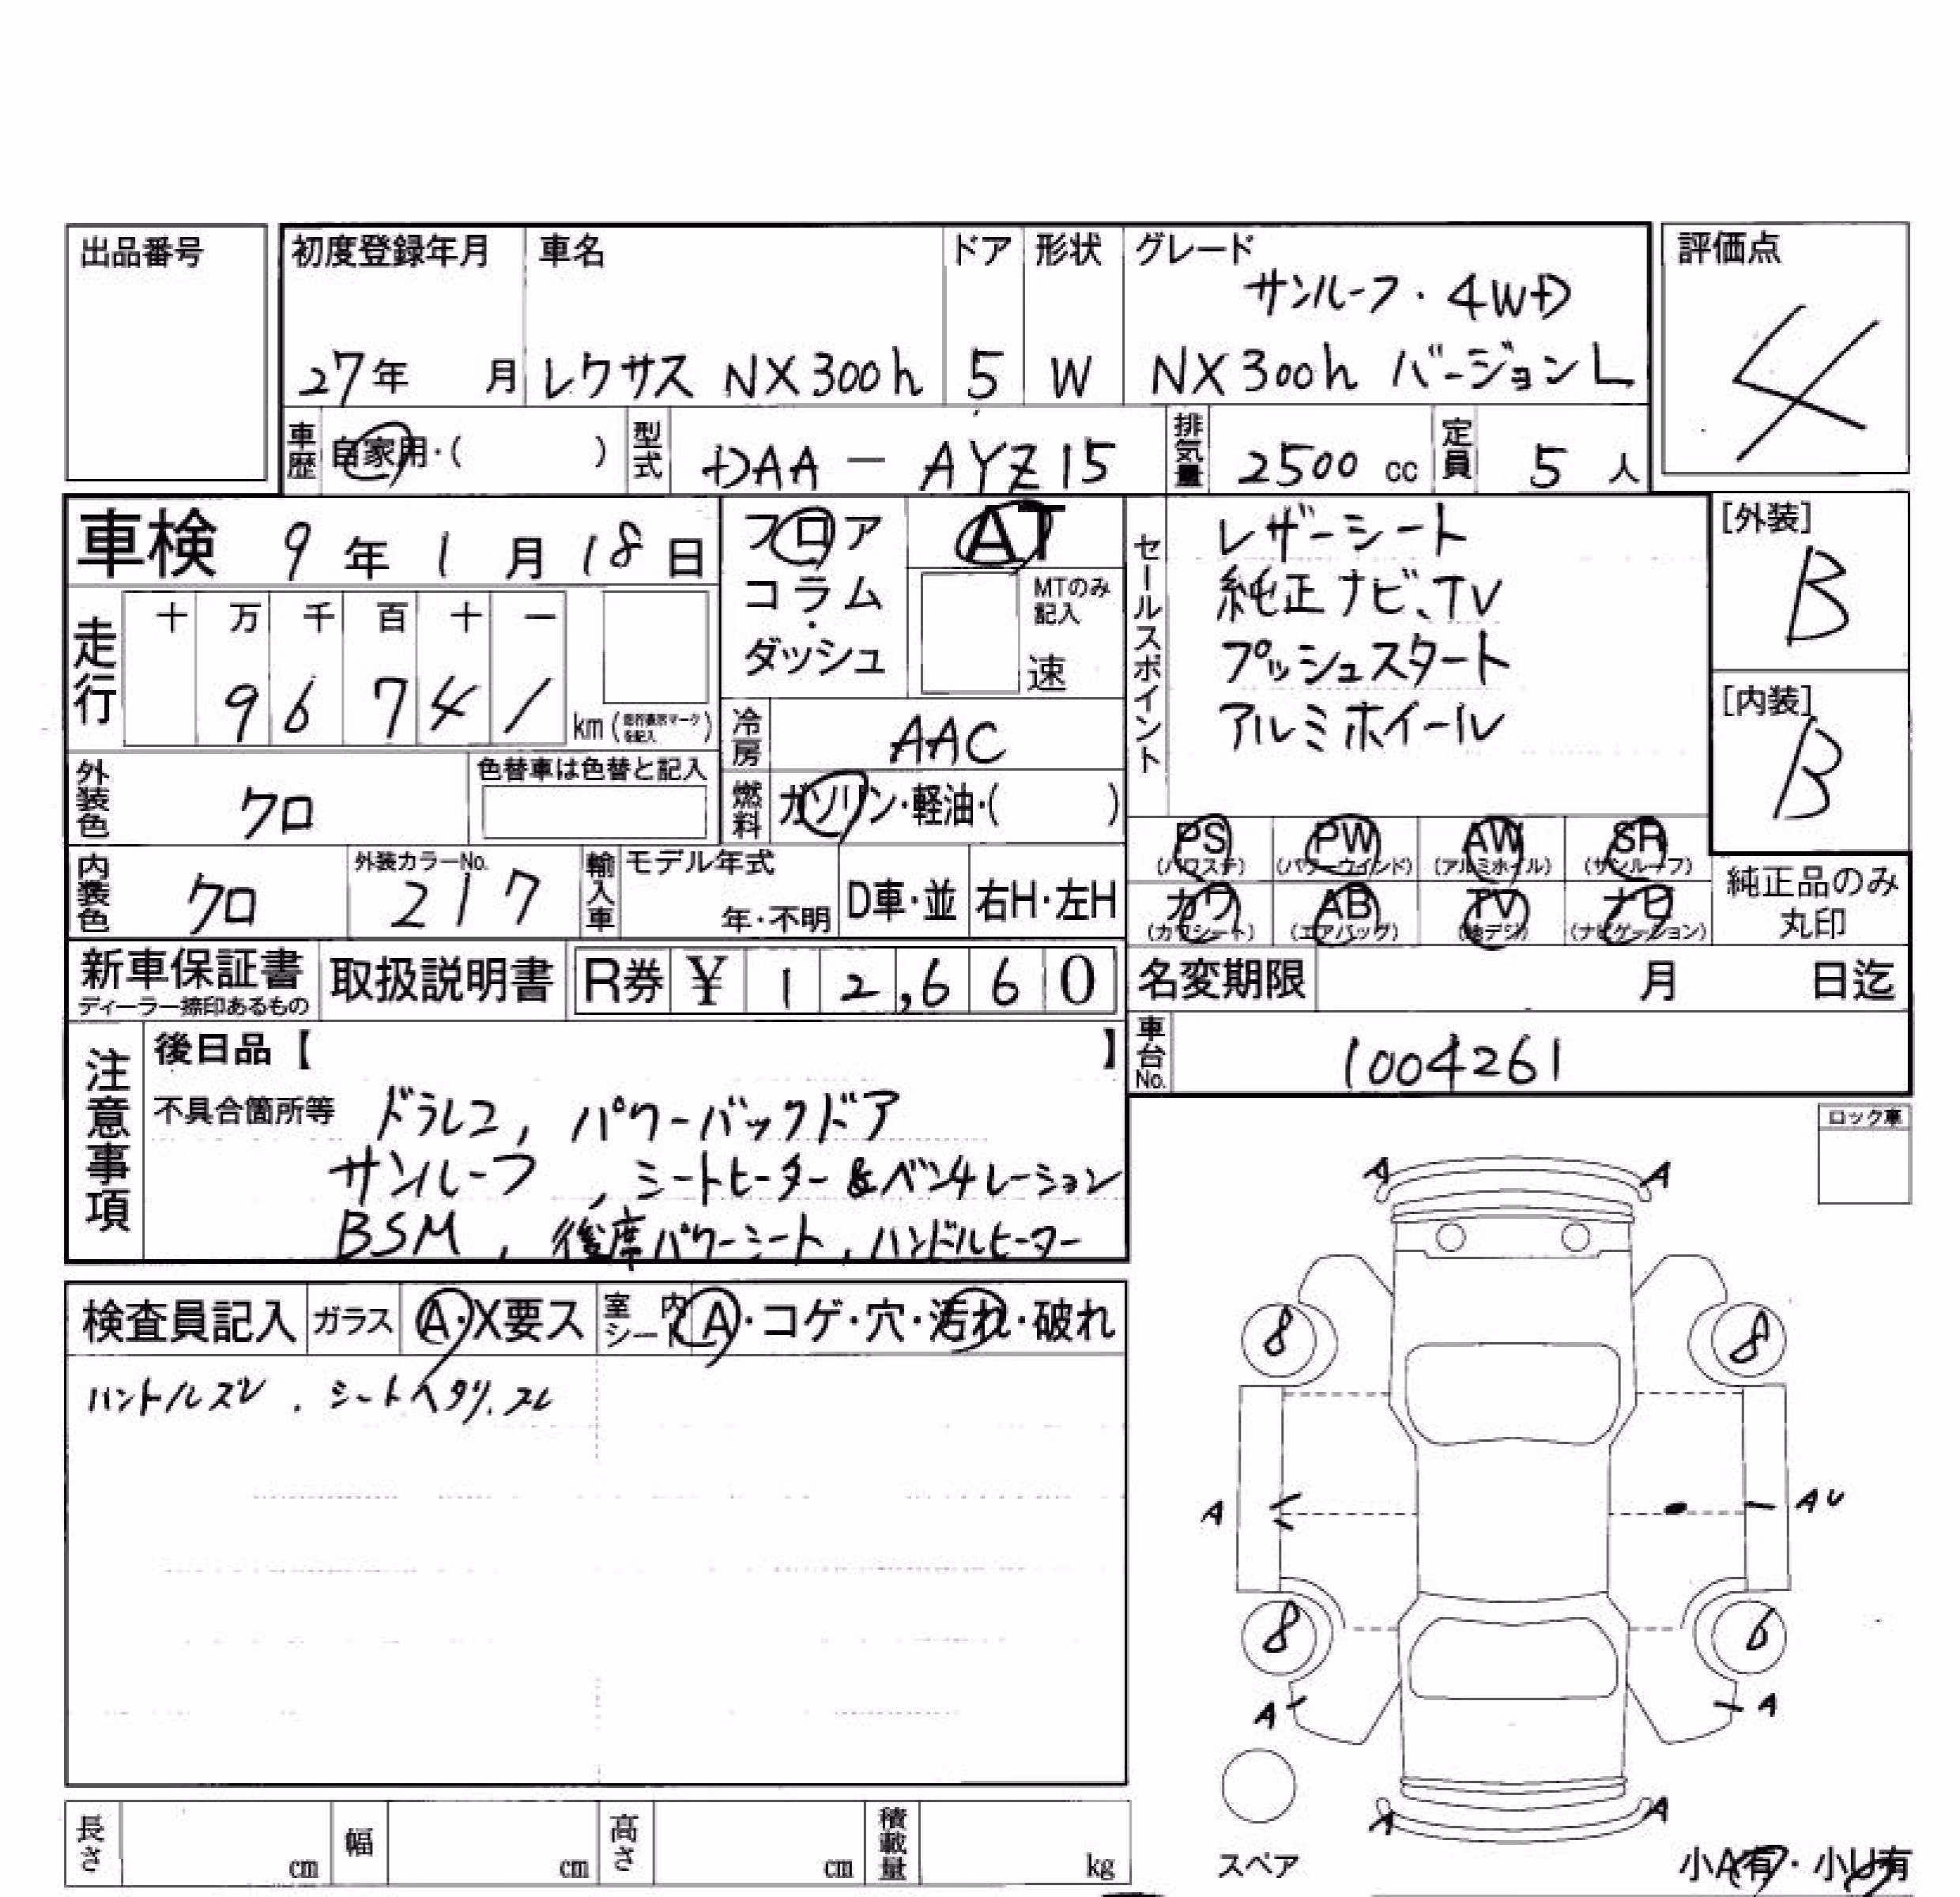 出品番号
初度登録年月 車名 ドア 形状 グレード
サンルーフ・4WD
27年 月 レクサス NX300h 5 W NX300h バージョンL
評価点
4
車歴 自家用・( ) 型式 DAA-AYZ15 排気量 2500 cc 定員 5 人
車検 9年 1月 18日
フロア AT
コラム・
ダッシュ
MTのみ
記入
速
セールスポイント
レザーシート
純正ナビ、TV
プッシュスタート
アルミホイール
[外装]
B
[内装]
B
走行 十 万 千 百 十 一
9 6 7 4 1
km
冷房 AAC
外装色 クロ 色替車は色替と記入
燃料 ガソリン・軽油・( )
PS PW AW SR
(パワステ) (パワーウインド) (アルミホイル) (サンルーフ)
カワ AB TV ナビ
(カワシート) (エアバッグ) (地デジ) (ナビゲーション)
純正品のみ
丸印
内装色 クロ 外装カラーNo. 217 輸入車 モデル年式 年・不明 D車・並 右H・左H
新車保証書 取扱説明書 R券 ¥ 12,660
ディーラー捺印あるもの
名変期限 月 日迄
車台No. 1004261
注意事項
後日品【 】
不具合箇所等 ドラレコ, パワーバックドア
サンルーフ , シートヒーター&ベンチレーション
BSM , 後席パワーシート, ハンドルヒーター
ロック車
検査員記入 ガラス A・X要ス 室内シート A・コゲ・穴・汚れ・破れ
ハンドルズレ . シートヘタリ.スレ
A A
8 8
A AU
8 6
A A
A A
スペア
小A有・小U有
長さ cm 幅 cm 高さ cm 積載量 kg